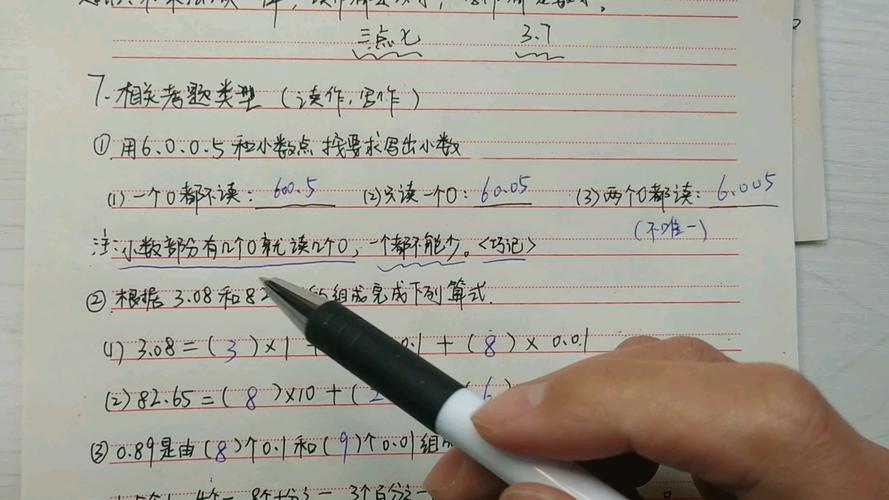 三点七 3.7
7.相关考题类型(读作,写作)
①用6.0.0.5和小数点按要求写出小数
(1)一个0都不读:600.5 (2)只读一个0:60.05 (3)两个0都读:6.005
(不唯一)
注:小数部分有几个0就读几个0,一个都不能少。<巧记>
②根据3.08和82 组成完成下列算式.
(1) 3.08=(3)×1+ 0.1+(8)×0.01
(2) 82.65=(8)×10+(2 6
③0.89是由(8)个0.1和(9)个0.01组